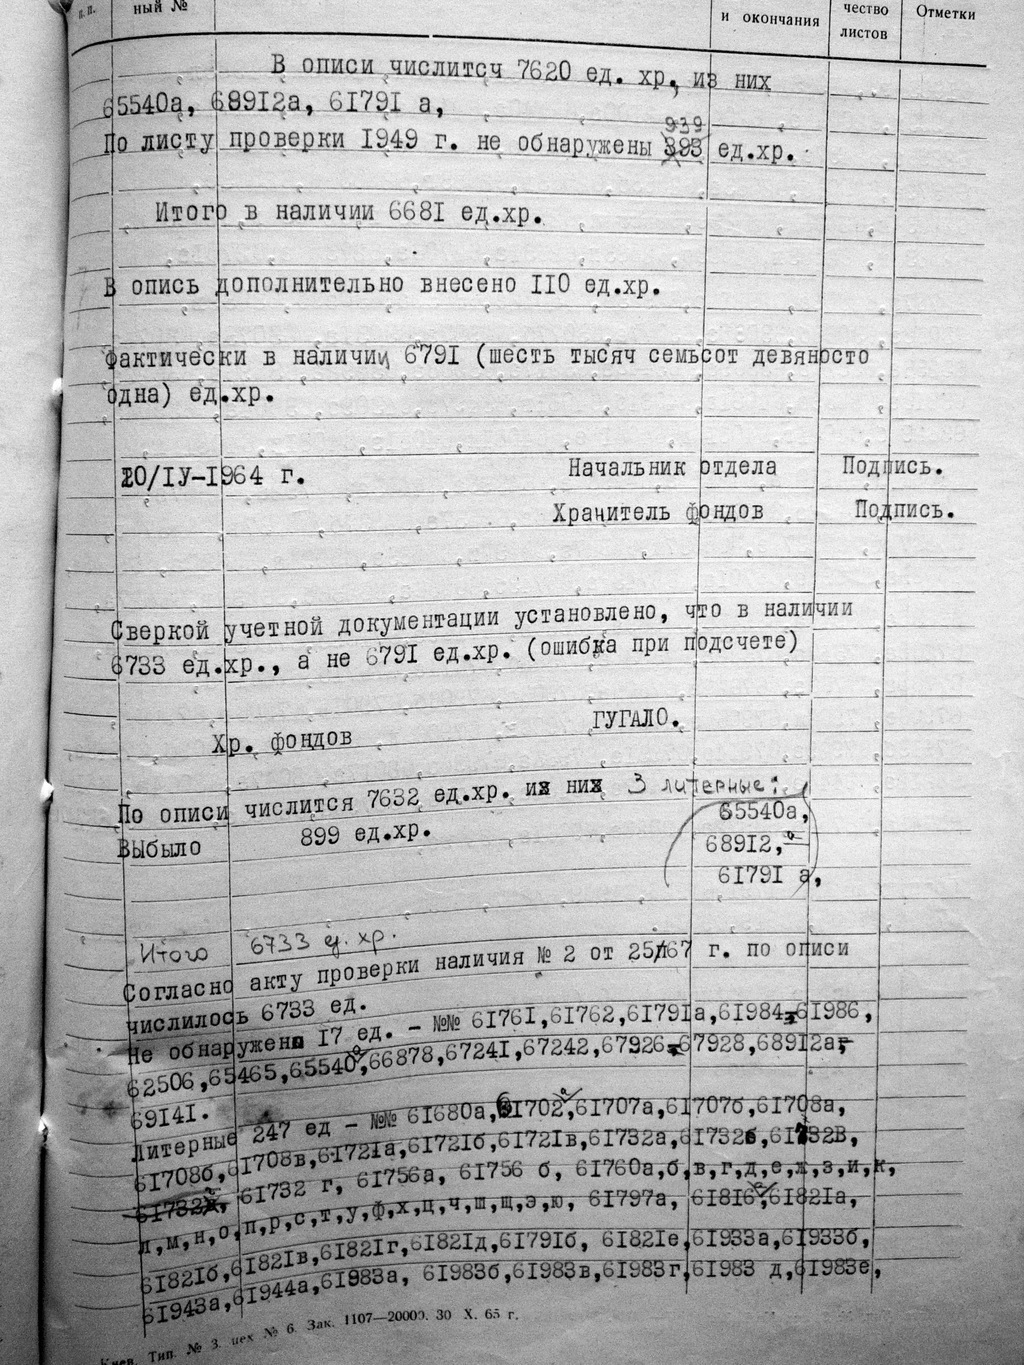 п.п.
ный №
и окончания
чество
листов
Отметки
В описи числится 7620 ед. хр, из них
65540а, 68912а, 61791 а,
939
По листу проверки 1949 г. не обнаружены 393 ед.хр.
Итого в наличии 6681 ед.хр.
В опись дополнительно внесено 110 ед.хр.
Фактически в наличии 6791 (шесть тысяч семьсот девяносто
одна) ед.хр.
20/IУ-1964 г. Начальник отдела Подпись.
Хранитель фондов Подпись.
Сверкой учетной документации установлено, что в наличии
6733 ед.хр., а не 6791 ед.хр. (ошибка при подсчете)
Хр. фондов ГУГАЛО.
По описи числится 7632 ед.хр. из них 3 литерные:
65540а,
Выбыло 899 ед.хр. 68912,а
61791 а,
Итого 6733 ед. хр.
Согласно акту проверки наличия № 2 от 25/67 г. по описи
числилось 6733 ед.
Не обнаружено 17 ед. - №№ 61761,61762,61791а,61984,61986,
62506,65465,65540а,66878,67241,67242,67926,67928,68912а,
69141.
Литерные 247 ед - №№ 61680а,61702а,61707а,61707б,61708а,
61708б,61708в,61721а,61721б,61721в,61732а,61732б,61732В,
61732д, 61732 г, 61756а, 61756 б, 61760а,б,в,г,д,е,ж,з,и,к,
л,м,н,о,п,р,с,т,у,ф,х,ц,ч,ш,щ,э,ю, 61797а, 61816а,61821а,
61821б,61821в,61821г,61821д,61791б, 61821е,61933а,61933б,
61943а,61944а,61983а, 61983б,61983в,61983г,61983 д,61983е,
Киев. Тип. № 3. цех № 6. Зак. 1107—20000. 30 X. 65 г.